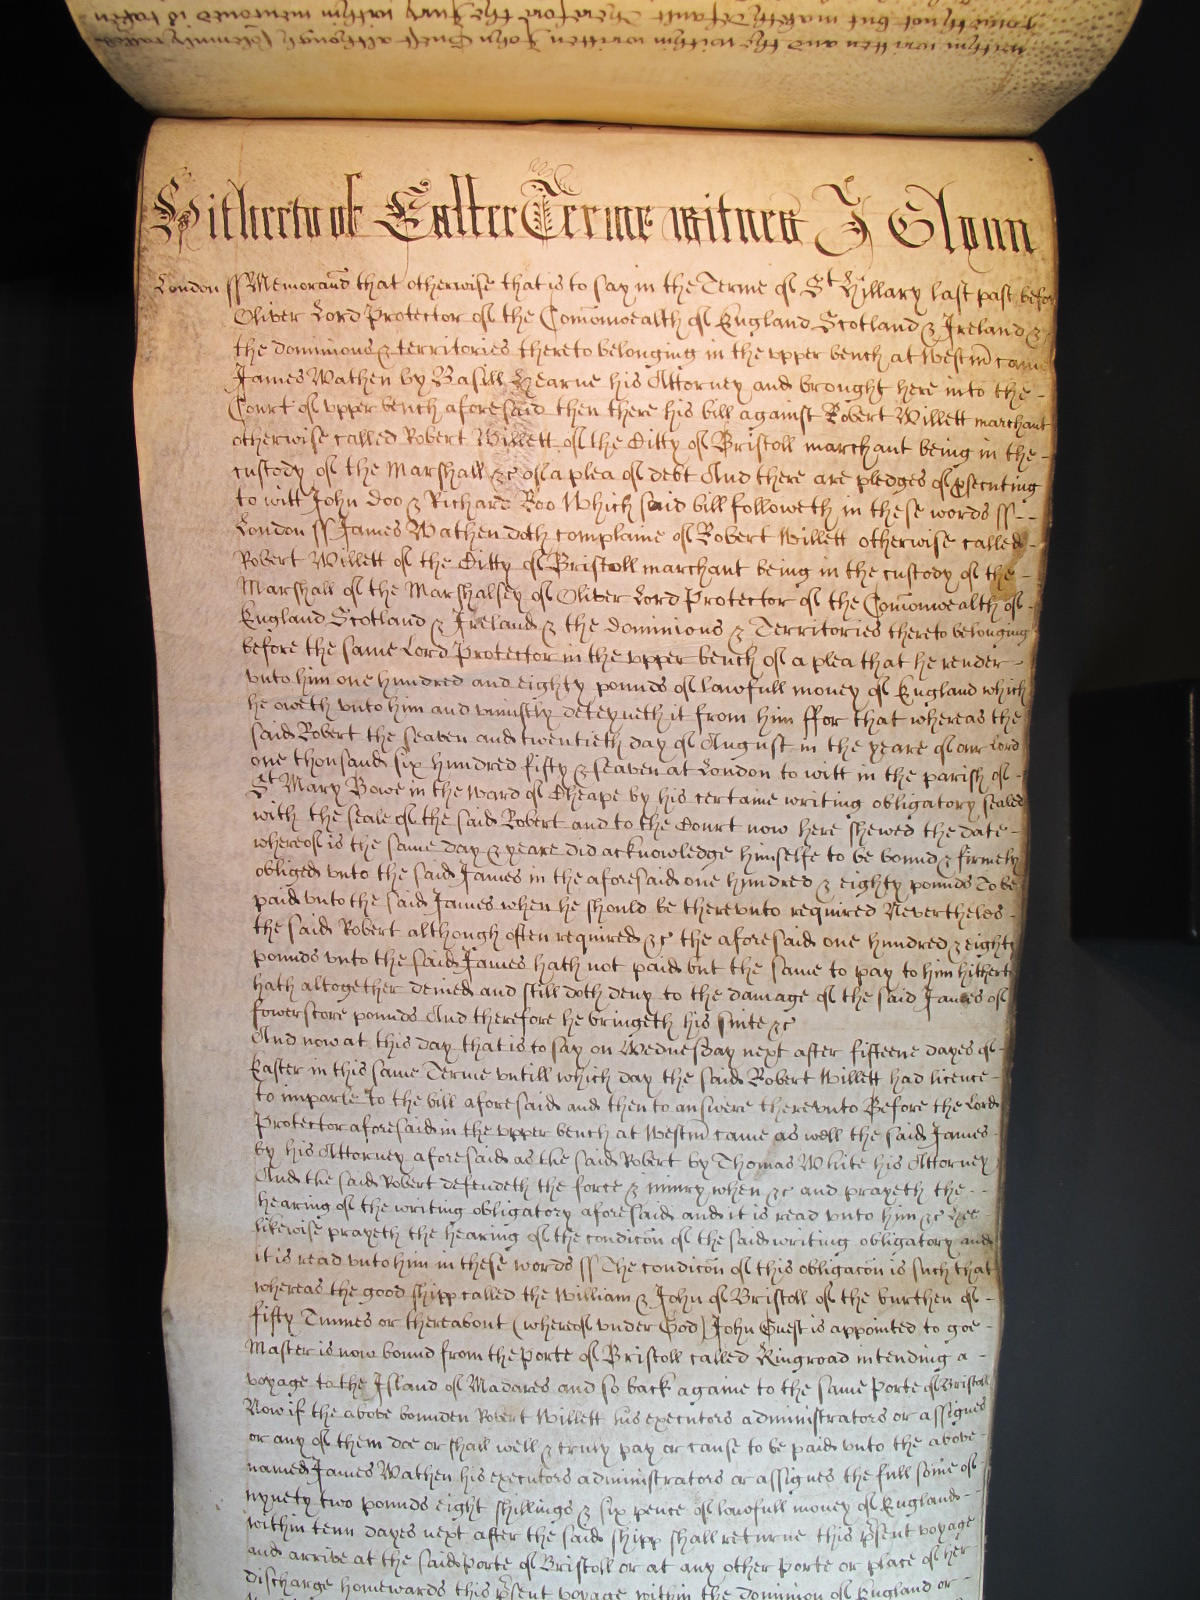 within written and the within written John Guest although solemnly called
come not but maketh default Therefore the Jury within mentioned is taken
Hitherto of Easter Terme witnes J Glynn
London ss Memorand that otherwise that is to say in the Terme of St Hillary last past before
Oliver Lord Protector of the Comonwealth of England Scotland & Ireland &
the dominions & territories thereto belonging in the upper bench at Westm came
James Wathen by Basill Hearne his Attorney and brought here into the
Court of upper bench aforesaid then there his bill against Robert Willett marchant
otherwise called Robert Willett of the Citty of Bristoll marchant being in the
custody of the Marshall &c of a plea of debt And there are pledges of psecuting
to witt John Doo & Richard Roo Which said bill followeth in these words ss
London ss James Wathen doth complaine of Robert Willett otherwise called
Robert Willett of the Citty of Bristoll marchant being in the custody of the
Marshall of the Marshalsey of Oliver Lord Protector of the Comonwealth of
England Scotland & Ireland & the dominions & Territories thereto belonging
before the same Lord Protector in the upper bench of a plea that he render
unto him one hundred and eighty pounds of lawfull money of England which
he oweth unto him and uniustly deteyneth it from him ffor that whereas the
said Robert the seaven and twentieth day of August in the yeare of our Lord
one thousand six hundred fifty & seaven at London to witt in the parish of
St Mary Bowe in the ward of Cheape by his certaine writing obligatory sealed
with the seale of the said Robert and to the Court now here shewed the date
whereof is the same day & yeare did acknowledge himselfe to be bound & firmely
obliged unto the said James in the aforesaid one hundred & eighty pounds To be
paid unto the said James when he should be thereunto required Neverthelos
the said Robert although often required &c the aforesaid one hundred & eighty
pounds unto the said James hath not paid but the same to pay to him hitherto
hath altogether denied and still doth deny to the damage of the said James of
fowerscore pounds And therefore he bringeth his suite &c
And now at this day that is to say on Wednesday next after fifteene dayes of
Easter in this same Terme untill which day the said Robert Willett had licence
to imparle to the bill aforesaid and then to answere thereunto Before the Lord
Protector aforesaid in the upper bench at Westm came as well the said James
by his Attorney aforesaid as the said Robert by Thomas White his Attorney
And the said Robert defendeth the force & iniury when &c and prayeth the
hearing of the writing obligatory aforesaid and it is read unto him &c Hee
likewise prayeth the hearing of the condicon of the said writing obligatory and
it is read unto him in these words ss The condicon of this obligacon is such that
whereas the good shipp called the William & John of Bristoll of the burthen of
fifty Tunnes or thereabout (whereof under God) John Guest is appointed to goe
Master is now bound from the Porte of Bristoll called Kingroad intending a
voyage to the Island of Madares and so back againe to the same Porte of Bristoll
Now if the above bounden Robert Willett his executors administrators or assignes
or any of them doe or shall well & truly pay or cause to be paid unto the above
named James Wathen his executors administrators or assignes the full some of
nynety two pounds eight shillings & six pence of lawfull money of England
within tenn dayes next after the said shipp shall returne this psent voyage
and arrive at the said Porte of Bristoll or at any other Porte or place of her
discharge homewards this psent voyage within the dominion of England or